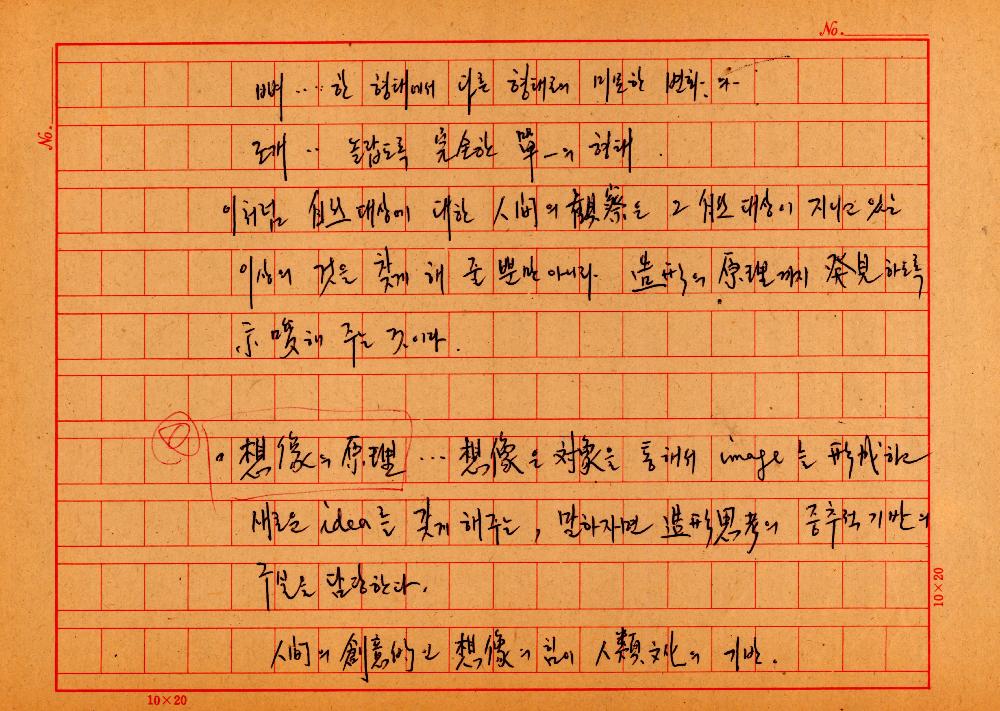 No.
No.
뼈 ... 한 형태에서 다른 형태로의 미묘한 변화.
조개 .. 놀랍도록 完全한 單一의 형태.
이처럼 自然대상에 대한 人間의 觀察은 그 自然대상이 지니고 있는
이상의 것을 찾게 해 줄 뿐만 아니라 造形의 原理까지 発見하도록
示唆해 주는 것이다.
想像의 原理 ... 想像은 対象을 통해서 image를 形成하고
새로운 idea를 갖게 해주는, 말하자면 造形思考의 중추적 기반의
구실을 담당한다.
人間의 創意的인 想像의 힘이 人類文化의 기반.
10×20
10×20